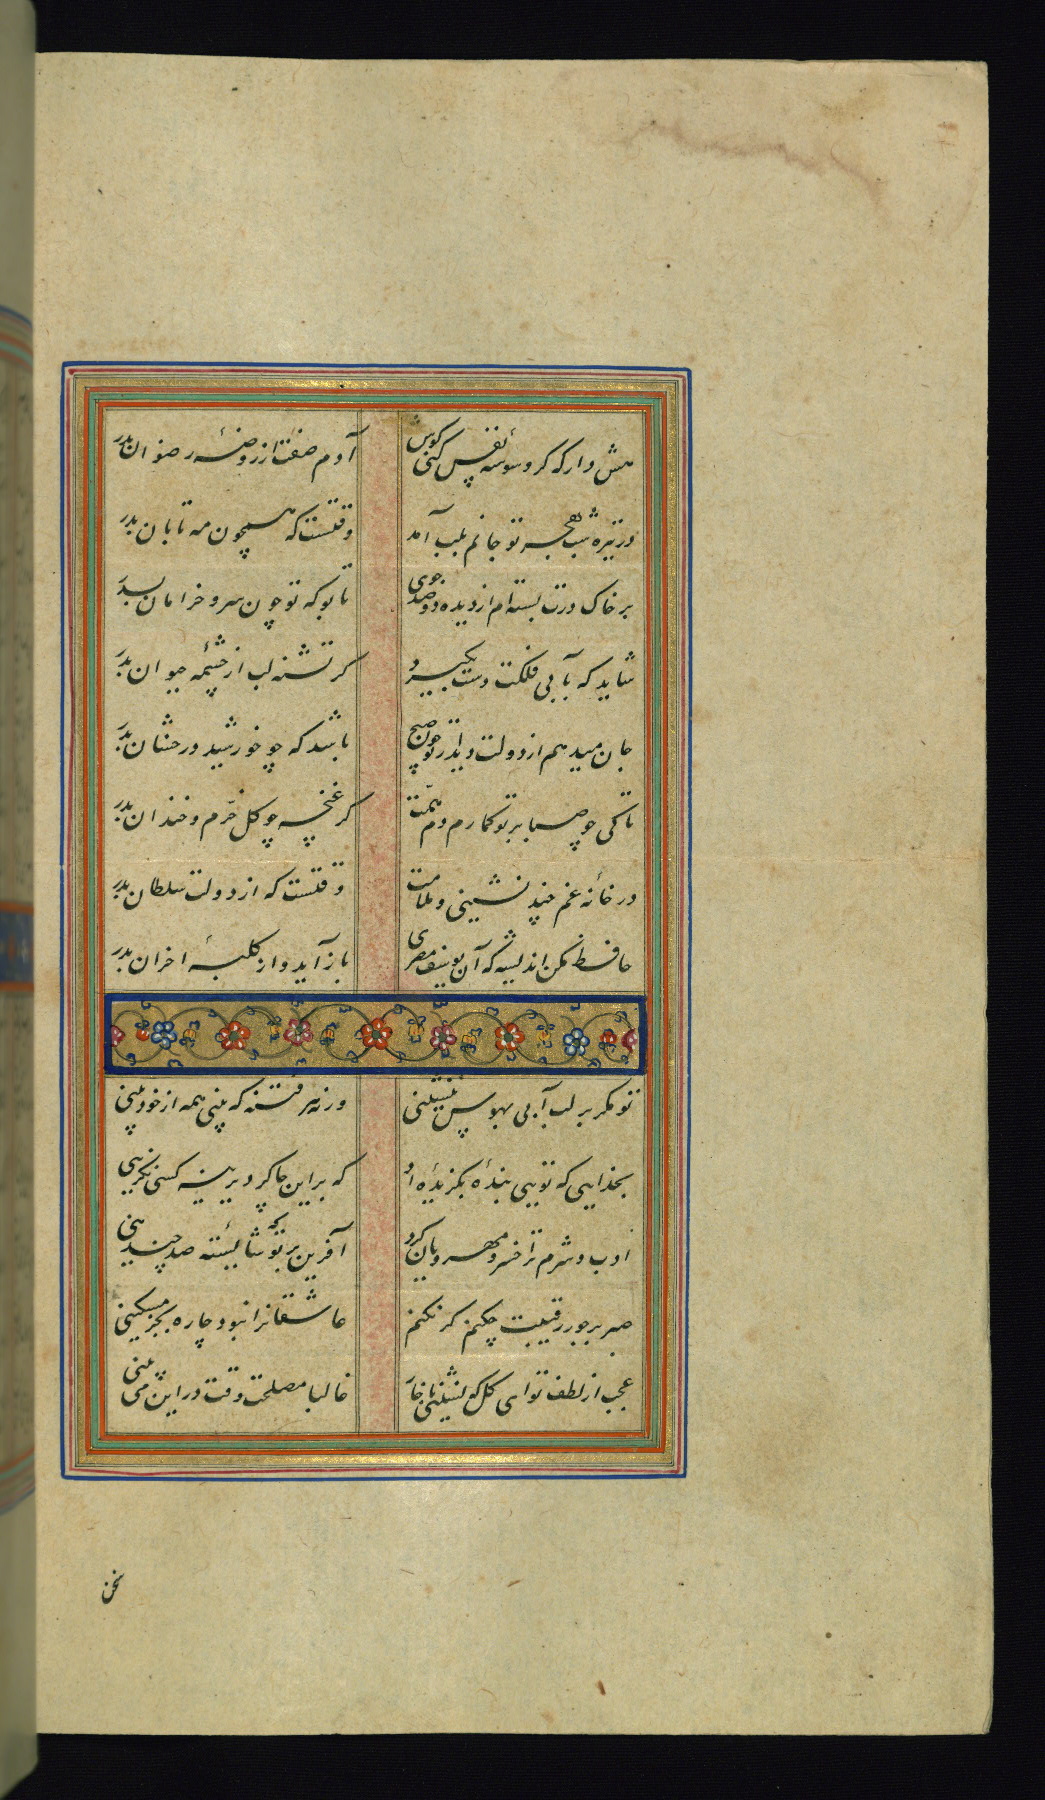 هش دار که کر وسوسهٔ نفس کنی کوش
آدم صفت از روضهٔ رضوان بدر
در تیره شب هجر تو جانم بلب آمد
وقتست که همچون مه تابان بدر
بر خاک درت بسته‌ام از دیده دو صد جوی
تا بو که تو چون سرو خرامان بدر
شاید که بآبی فلکت دست بکیرد
کر تشنه لب از چشمهٔ حیوان بدر
جان میدهم از دولت دیدار تو چون صبح
باشد که چو خورشید درخشان بدر
تا کی چو صبا بر تو کمارم دم همت
کز غنچه چو کل خرّم و خندان بدر
در خانهٔ غم چند نشینی و ملامت
وقتست که از دولت سلطان بدر
حافظ مکن اندیشه که آن یوسف مصری
باز آید و از کلبهٔ احزان بدر
تو مکر بر لب آبی بهوس بنشینی
ورنه هر فتنه که بینی همه از خود بینی
بخدایی که تویی بندهٔ بکزیدهٔ او
که بر این چاکر دیرینه کسی نکزینی
ادب و شرم ترا خسرو مهرویان کرد
آفرین بر تو که شایستهٔ صد چندینی
صبر بر جور رقیبت چکنم کر نکنم
عاشقانرا نبود چاره بجز مسکینی
عجب از لطف تو ای کل که نشینی با خار
غالبا مصلحت وقت در این می بینی
سخن